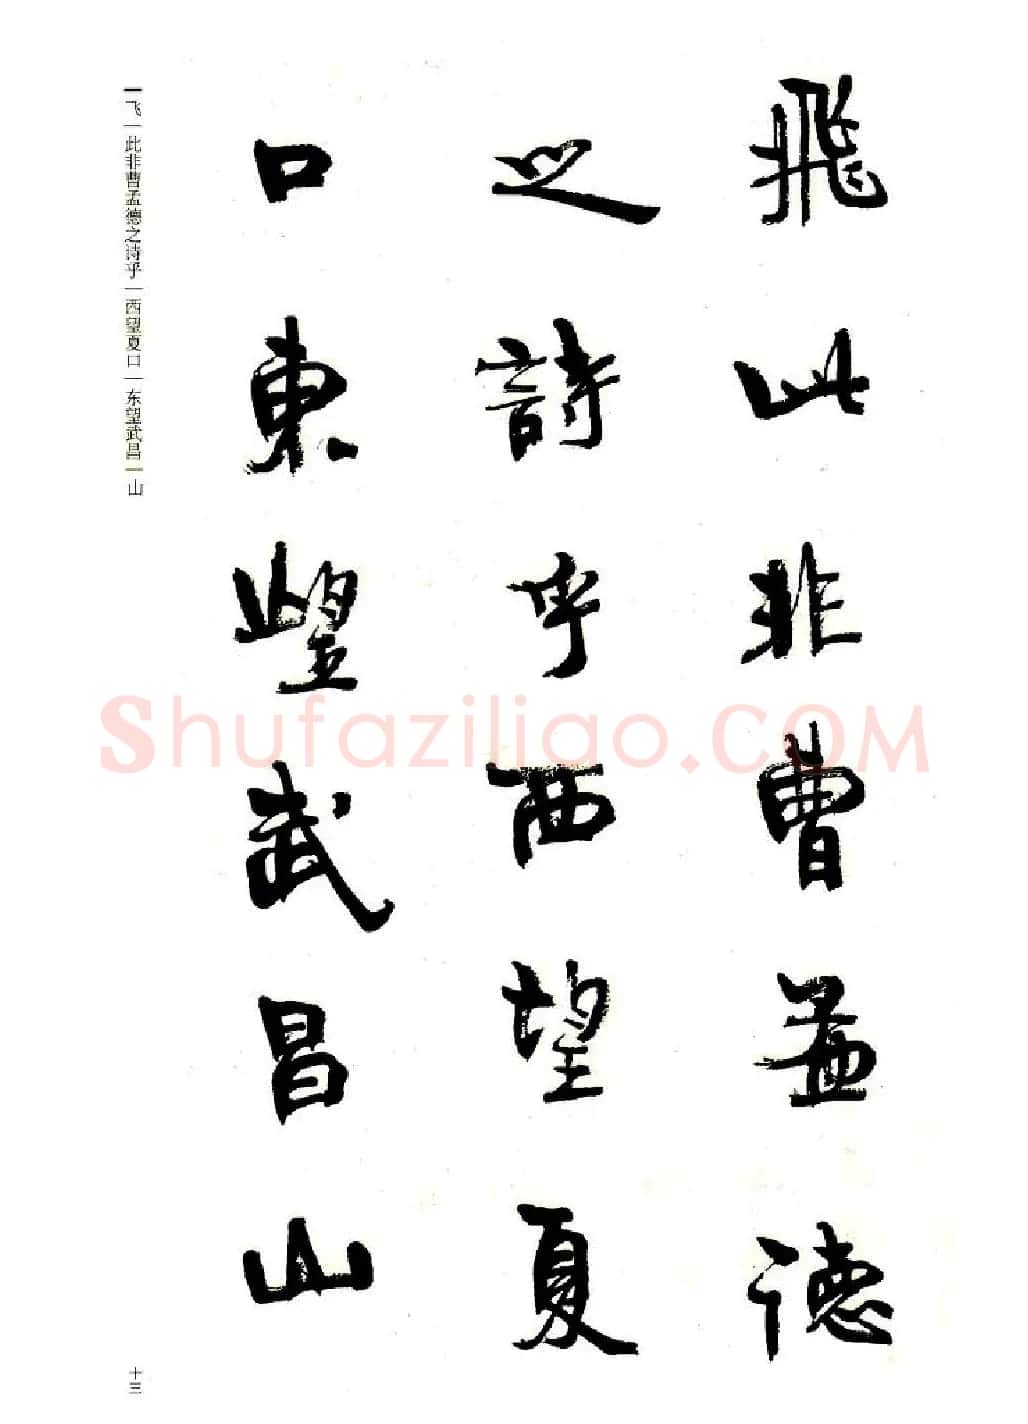 飛此非曹孟德
之詩乎西望夏
口東望武昌山
飞｜此非曹孟德之诗乎｜西望夏口｜东望武昌｜山
十三
Shufaziliao.COM